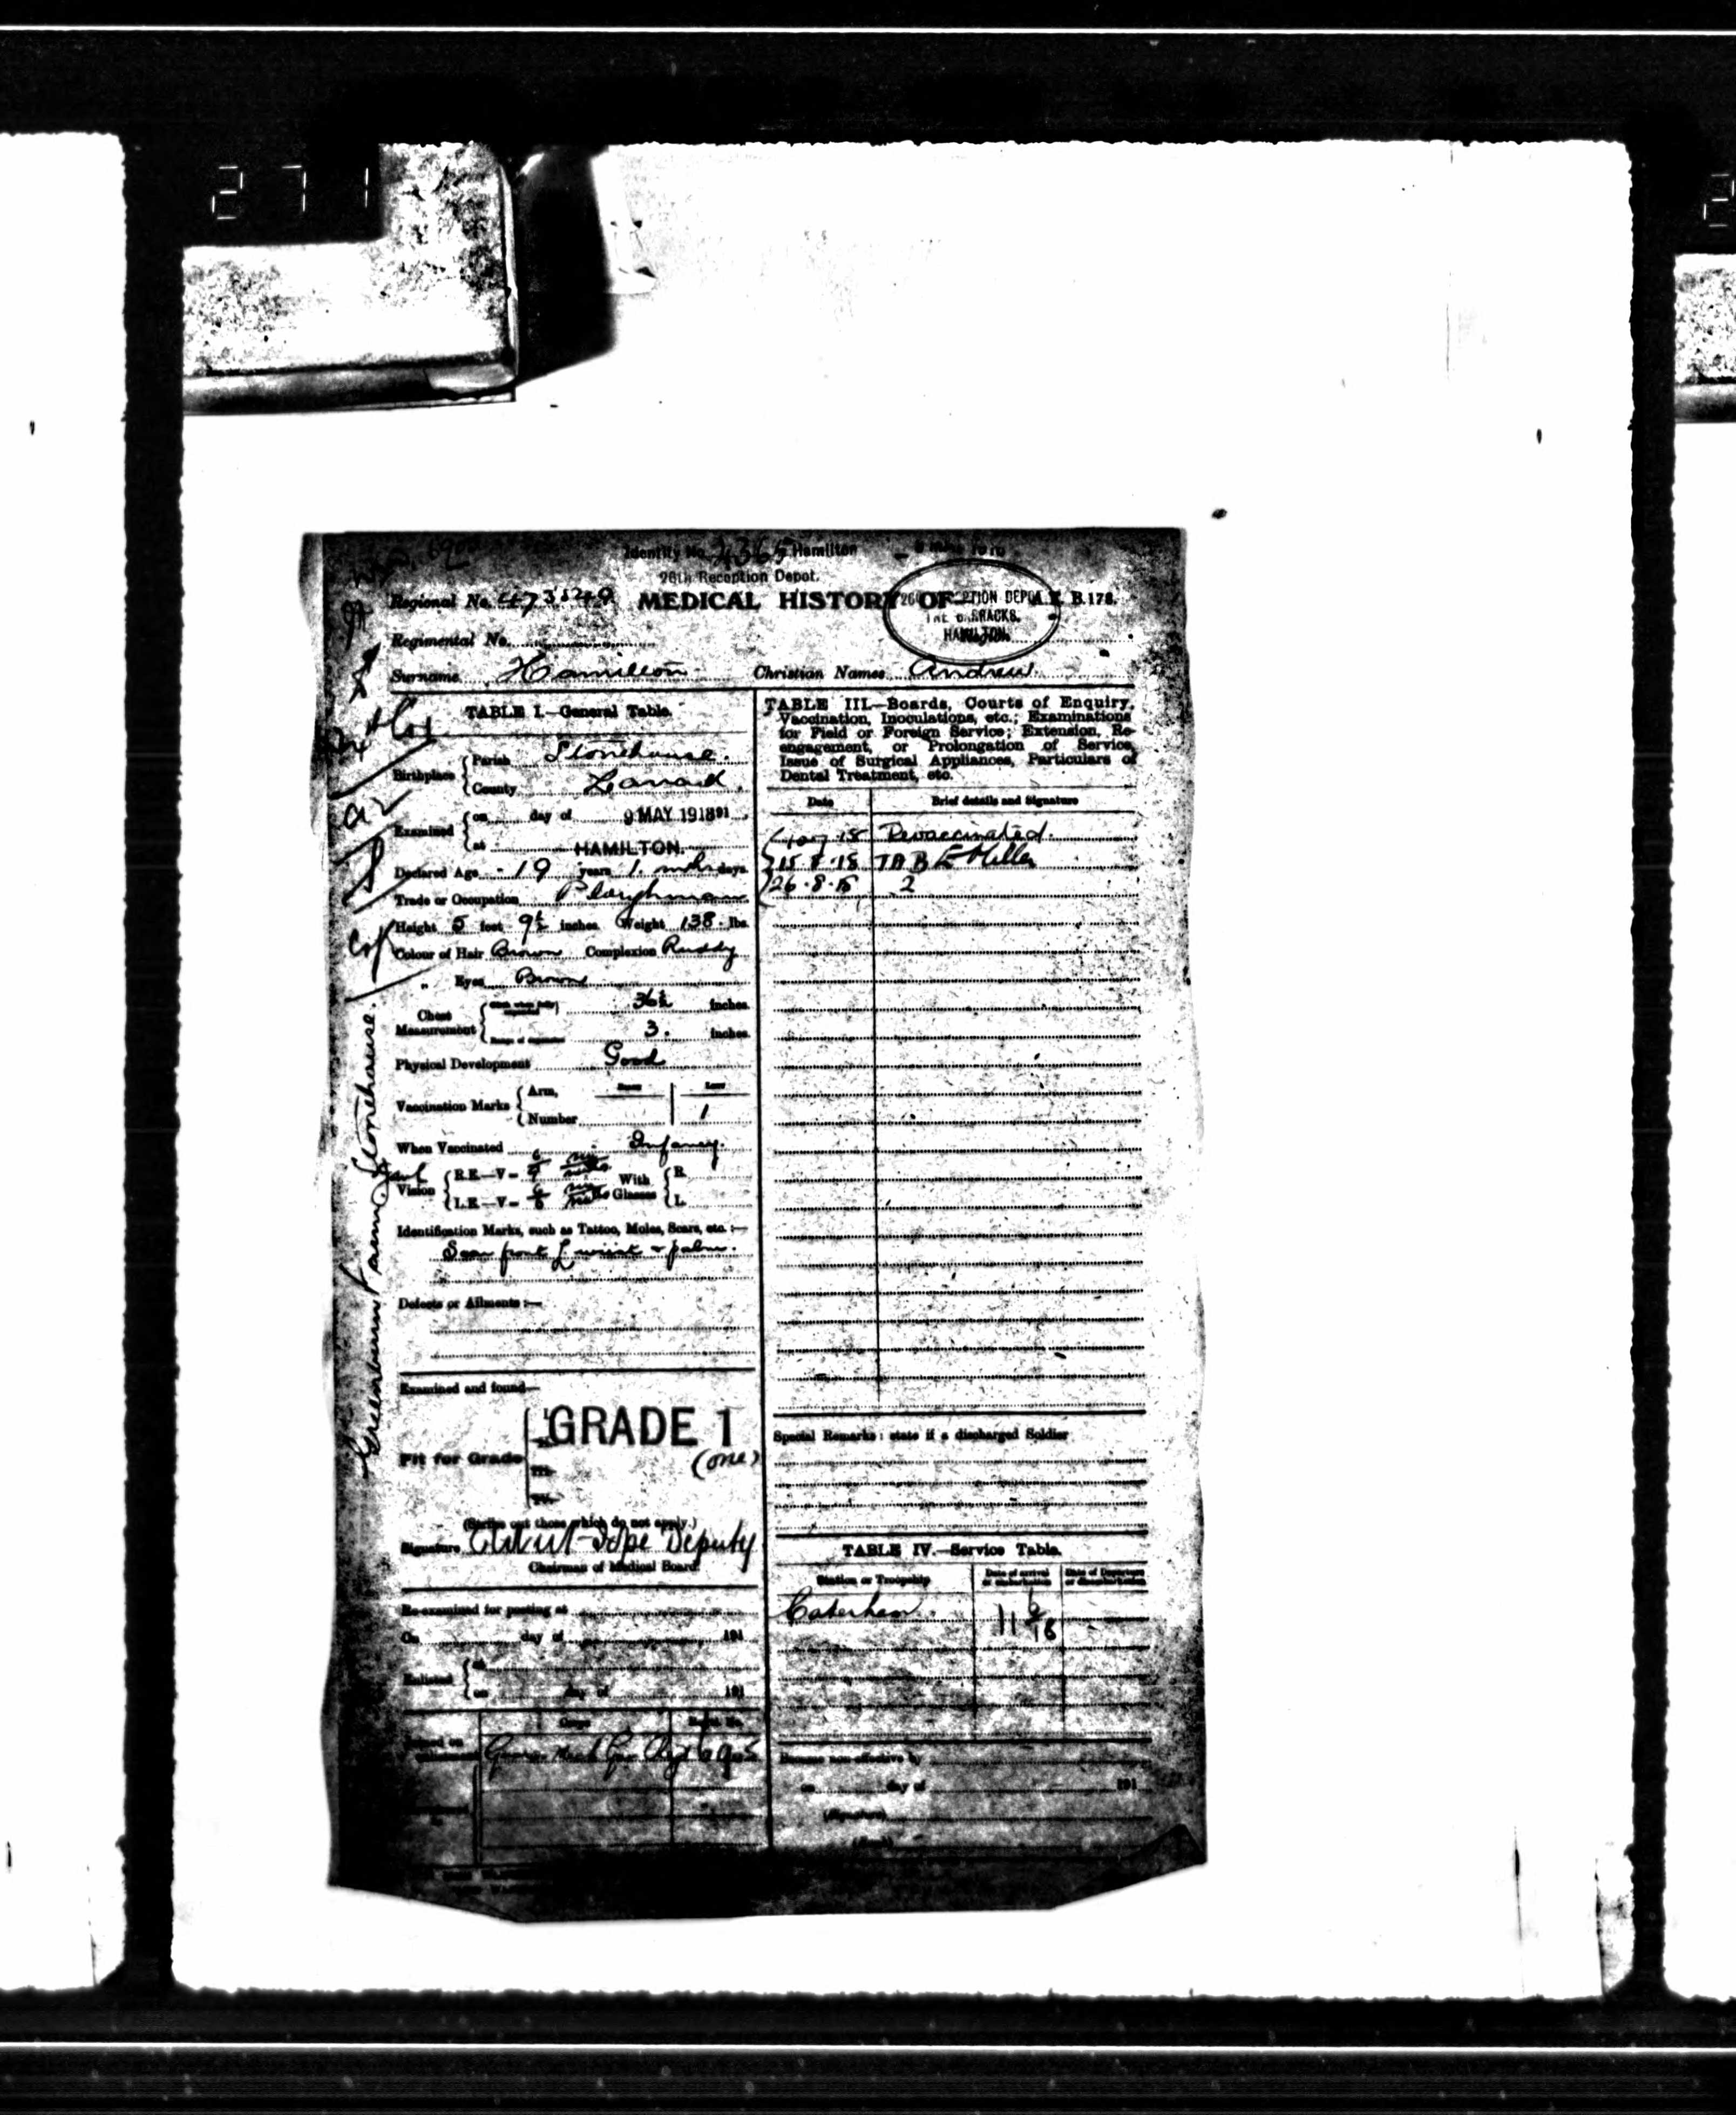 271
Identity No. 4365 Hamilton
26th Reception Depot.
Regional No. 473849 MEDICAL HISTORY OF B.178.
RECEPTION DEPOT
THE BARRACKS.
HAMILTON.
Regimental No.
Surname Hamilton Christian Names Andrew
TABLE I.—General Table.
Birthplace { Parish Stonehouse.
County Lanark
Examined { on day of 9 MAY 1918 191
at HAMILTON.
Declared Age 19 years 1 mths days.
Trade or Occupation Ploughman
Height 5 feet 9½ inches. Weight 138 lbs.
Colour of Hair Brown Complexion Ruddy
„ Eyes Brown
Chest Measurement { 36½ inches.
Range of expansion 3. inches.
Physical Development Good
Vaccination Marks { Arm,
Number 1
When Vaccinated Infancy.
Vision { R.E.—V= 6 With Glasses { R.
L.E.—V= 6 L.
Identification Marks, such as Tattoo, Moles, Scars, etc.:—
Scar front L wrist & palm.
Defects or Ailments:—
Examined and found—
Fit for Grade { GRADE 1
(one)
III.
IV.
(Strike out those which do not apply.)
Signature Deputy
Chairman of Medical Board.
Re-examined for posting at
On day of 191
Enlisted { at
on day of 191
Corps Regtl. No.
Joined on Enlistment Regt 6905
Greenburn Farm Stonehouse.
TABLE III.—Boards, Courts of Enquiry,
Vaccination, Inoculations, etc.; Examinations
for Field or Foreign Service; Extension, Re-
engagement, or Prolongation of Service,
Issue of Surgical Appliances, Particulars of
Dental Treatment, etc.
Date Brief details and Signature
Revaccinated.
15.8.18 TAB E Miller
26.8.18 2
Special Remarks: state if a discharged Soldier
TABLE IV.—Service Table.
Station or Troopship Date of arrival or embarkation Date of Departure or disembarkation
Caterham 11 18
Became non-effective by
on day of 191
(Signature)
(Rank)